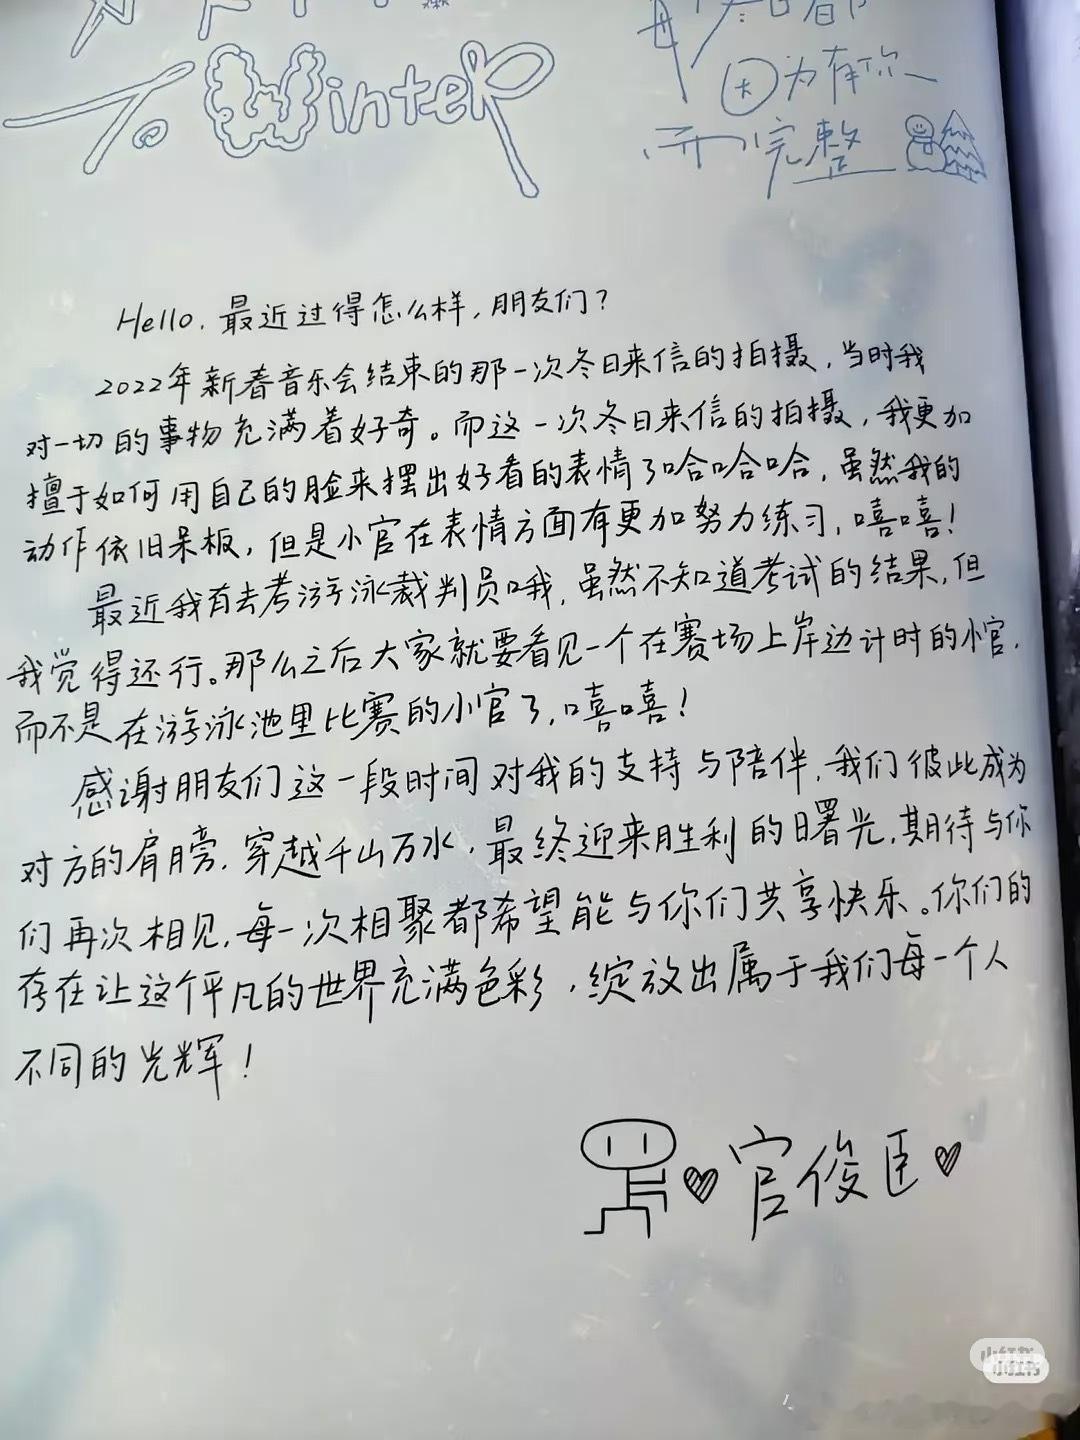 To Winter
因为有你
而完整
Hello，最近过得怎么样，朋友们？
2022年新春音乐会结束的那一次冬日来信的拍摄，当时我
对一切的事物充满着好奇。而这一次冬日来信的拍摄，我更加
擅于如何用自己的脸来摆出好看的表情了哈哈哈，虽然我的
动作依旧呆板，但是小官在表情方面有更加努力练习，嘻嘻！
最近我有去考游泳裁判员哦，虽然不知道考试的结果，但
我觉得还行。那么之后大家就要看见一个在赛场上岸边计时的小官，
而不是在游泳池里比赛的小官了，嘻嘻！
感谢朋友们这一段时间对我的支持与陪伴，我们彼此成为
对方的肩膀，穿越千山万水，最终迎来胜利的曙光，期待与你
们再次相见，每一次相聚都希望能与你们共享快乐。你们的
存在让这个平凡的世界充满色彩，绽放出属于我们每一个人
不同的光辉！
官俊臣
小红书
小红书